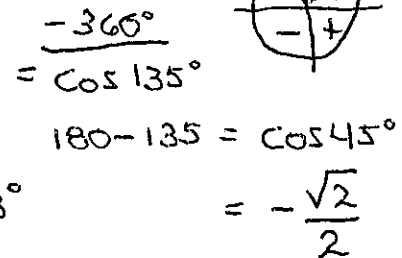 -360°
= Cos 135°
- +
180-135 = Cos45°
= - √2/2